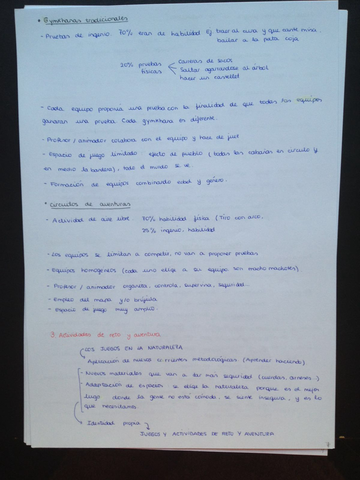 • Gymkanas tradicionales
- Pruebas de ingenio. 70% eran de habilidad Ej: traer al cura y que cante misa,
bailar a la pata coja
20% pruebas físicas
Carreras de sacos
Saltar agarrandose al árbol
hacer un castell
- Cada equipo proponia una prueba con la finalidad de que todos los equipos
ganaran una prueba. Cada gymkhana es diferente.
- Profesor / animador colabora con el equipo y hace de juez
- Espacio de juego limitado efecto de pueblo (todos los cabian en circulo y
en medio la bandera), todo el mundo se ve.
- Formación de equipos combinando edad y género.
• Circuitos de aventuras
- Actividad de aire libre 70% habilidad fisica (Tiro con arco,
30% ingenio, habilidad
- Los equipos se limitan a competir, no van a proponer pruebas
- Equipos homogéneos (cada uno elige a su equipo
- Profesor / animador: organiza, controla, supervisa, seguridad..
- Empleo del mapa y/o brújula
- Espacio de juego muy amplio.
3 Actividades de reto y aventura
- LOS JUEGOS EN LA NATURALEZA
Aplicación de nuevas corrientes metodologicas (Aprender haciendo)
- Nuevos materiales que van a dar más seguridad (cuerdas, arneses..)
- Adaptación de espacios se elige la naturaleza porque es el mejor
lugo donde la gente no esta cómoda, se siente insegura, y es lo
que necesitamos
- Identidad propia
JUEGOS Y ACTIVIDADES DE RETO Y AVENTURA
7